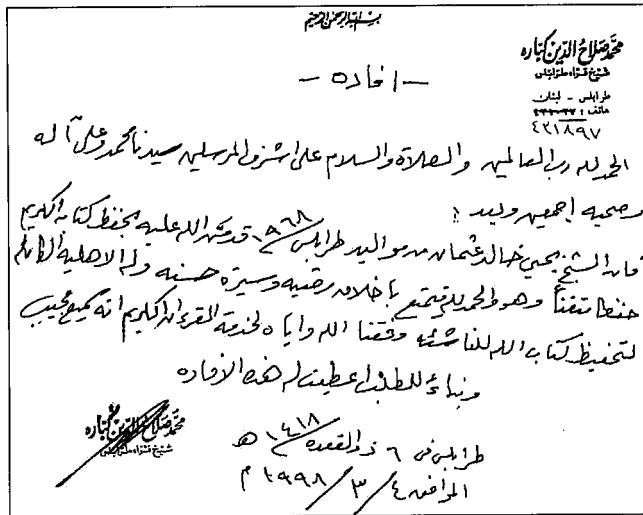 بسم الله الرحمن الرحيم
محمد صلاح الدين كبارة
شيخ قراء طرابلس
طرابلس - لبنان
هاتف :
٤٢١٨٩٧
- افاده -
الحمد لله رب العالمين والصلاة والسلام على اشرف المرسلين سيدنا محمد وعلى آله
وصحبه اجمعين وبعد :
فان الشيخ يحيى خالد عثمان من مواليد طرابلس / ١٩٦٨ قد منّ الله عليه بحفظ كتابه الكريم
حفظا متقناً وهو والحمد لله يتمتع باخلاق رضيه وسيرة حسنه وله الاهلية الكاملة
لتحفيظ كتاب الله للناشئه وفقنا الله واياه لخدمة القرءان الكريم انه سميع مجيب
وبناءً للطلب اعطيت له هذه الافاده
طرابلس في ٦ ذو القعده / ١٤١٨ هـ
الموافق ٤ / ٣ / ١٩٩٨ م
محمد صلاح الدين كبارة
شيخ قراء طرابلس